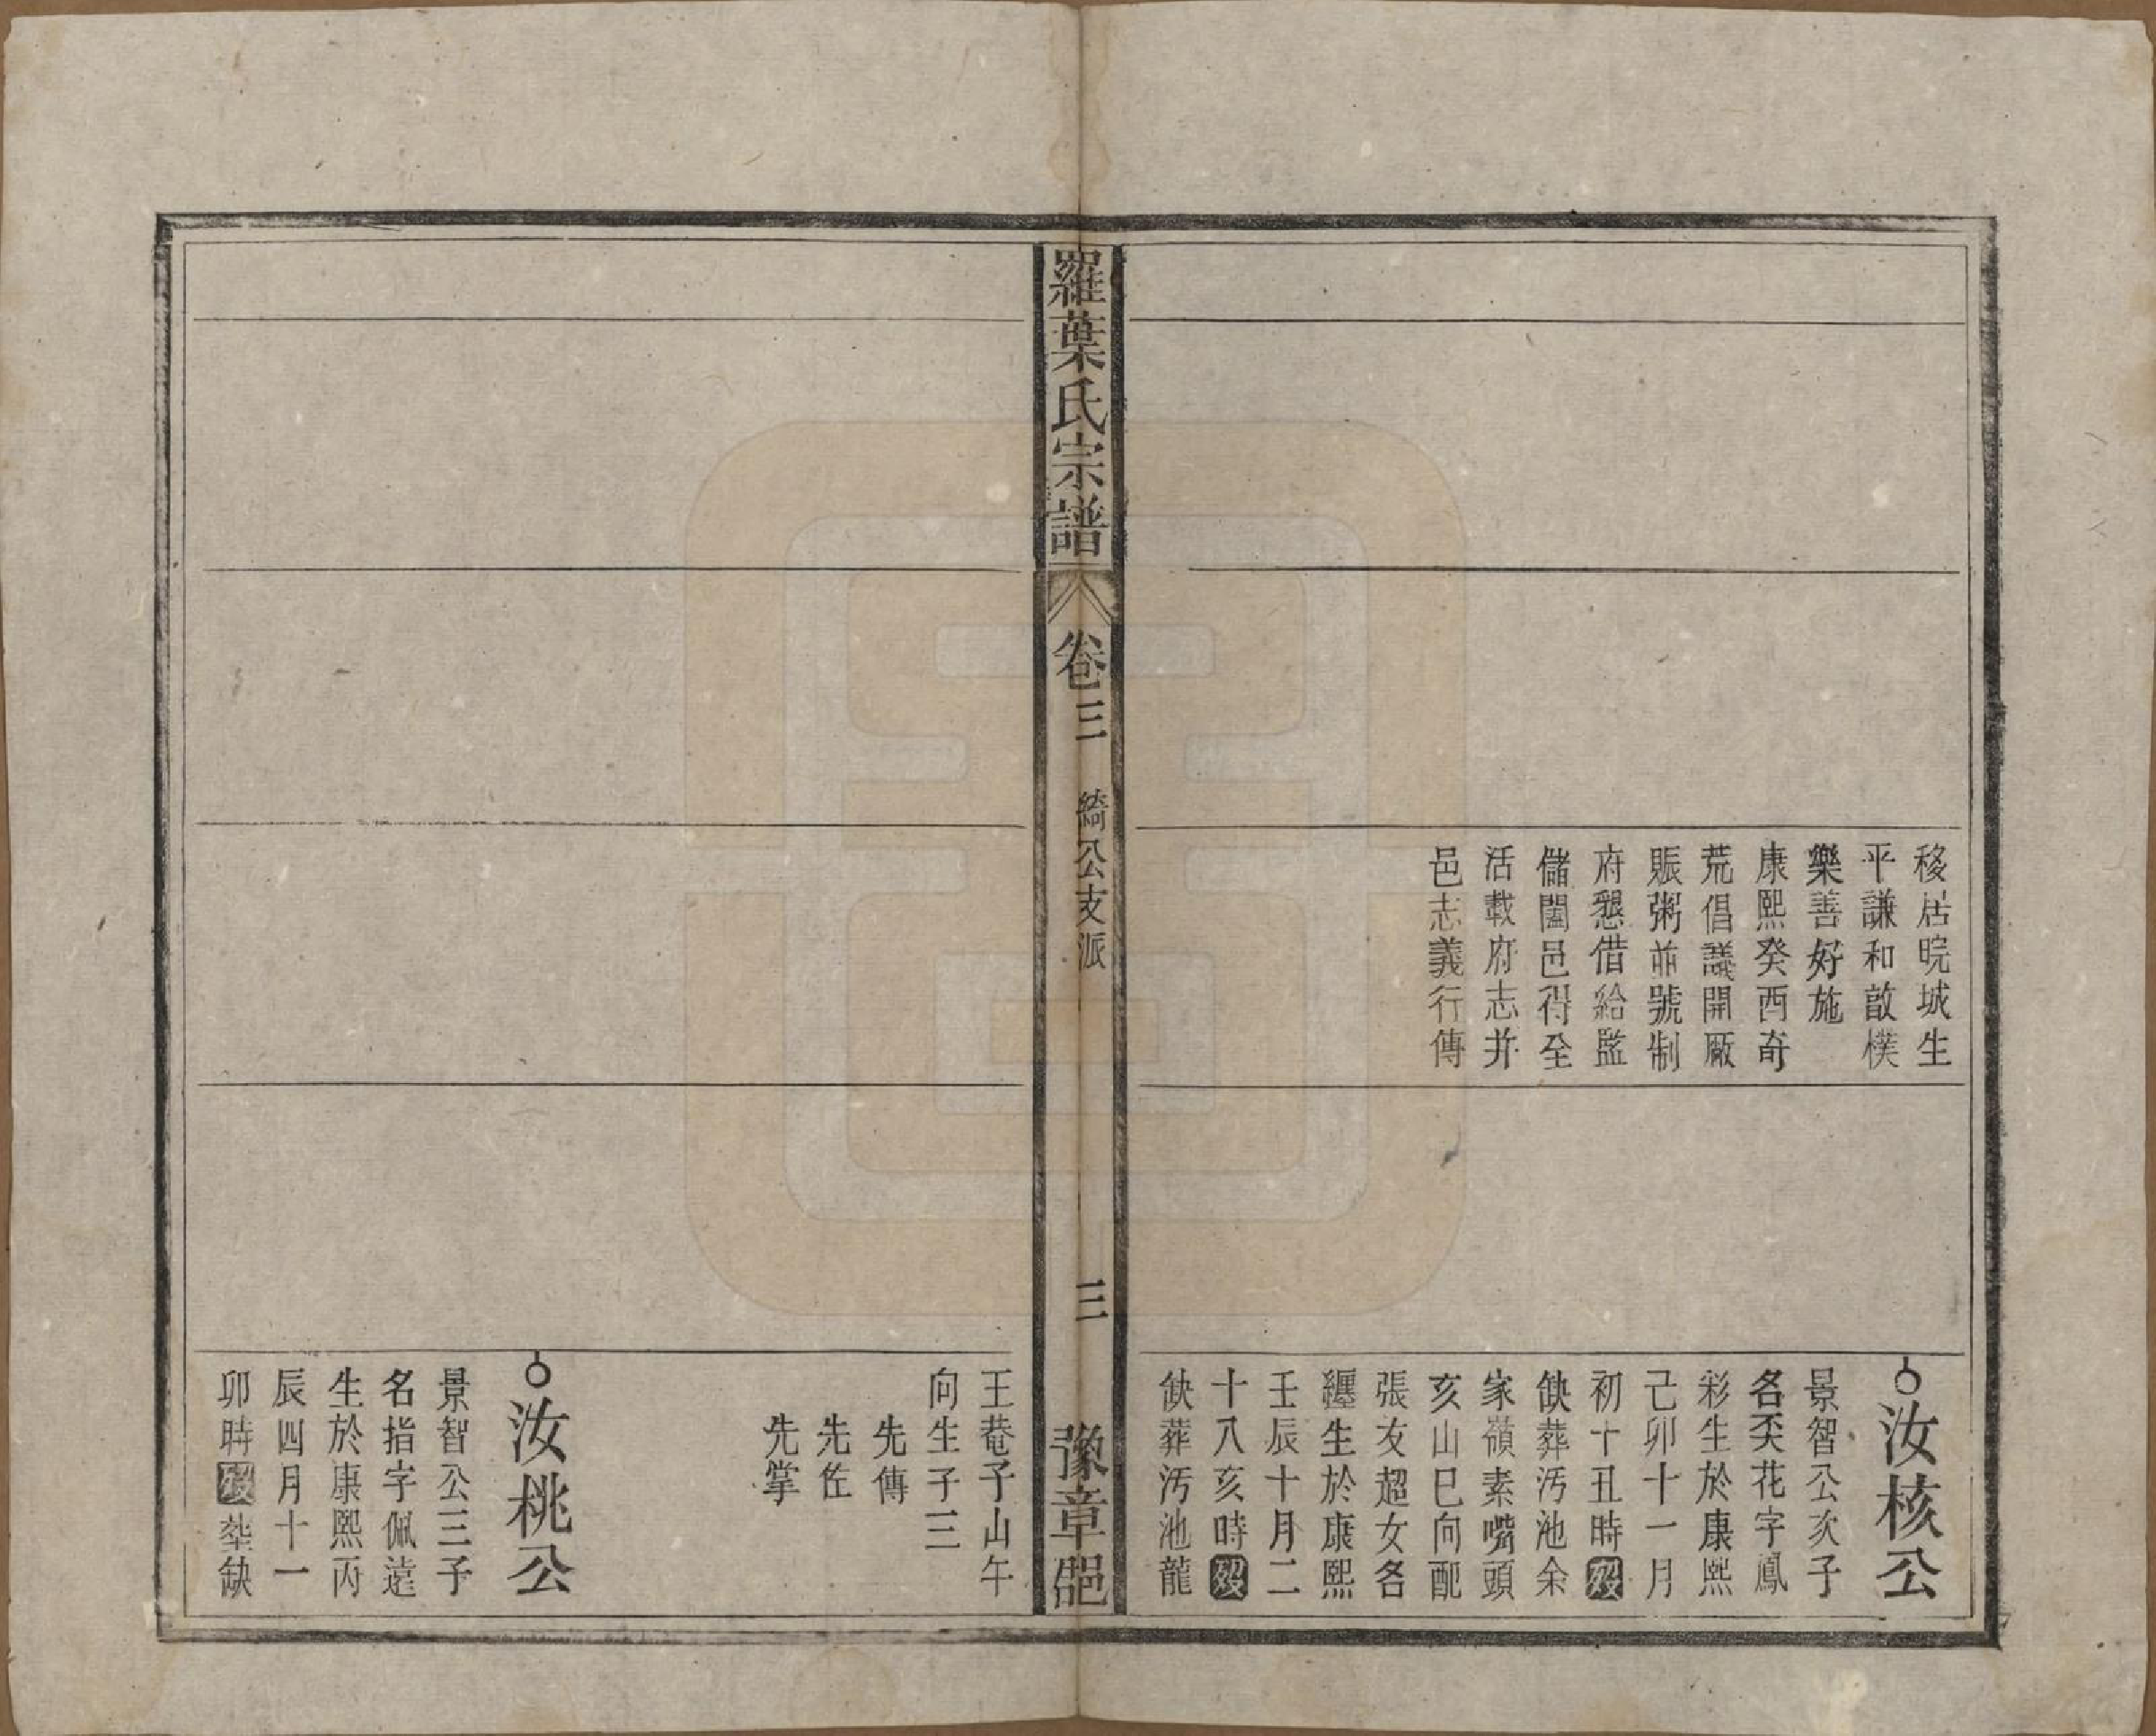 移居晥城生
平謙和敔樸
樂善好施
康熙癸酉奇
荒倡議開厰
賑粥並號制
府懇借給監
儲闔邑得全
活載府志并
邑志義行傳
汝核公
景智公次子
名奀花字鳳
彩生於康熙
己卯十一月
初十丑時歿
缺葬污池余
家嶺素嘴頭
亥山巳向配
張友超女名
纒生於康熙
壬辰十月二
十八亥時歿
缺葬污池龍
羅葉氏宗譜
卷三
綺公支派
三
豫章郡
王菴子山午
向生子三
先傳
先佐
先掌
汝桃公
景智公三子
名指字佩遠
生於康熙丙
辰四月十一
卯時歿塟缺